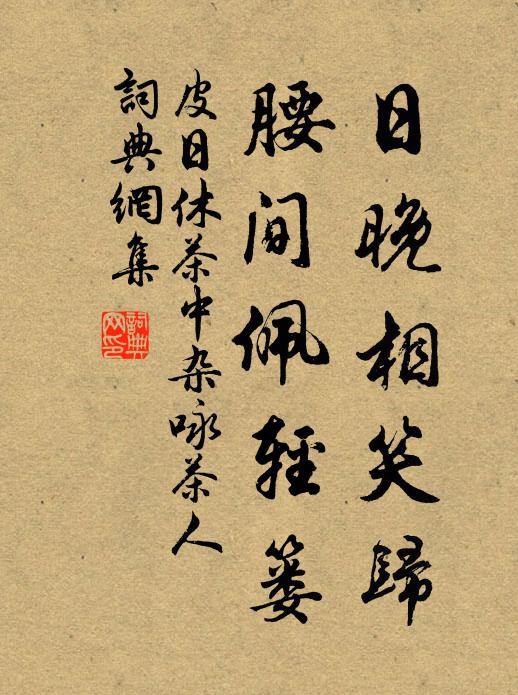 日晚相笑歸
腰间佩輕篓
皮日休茶中杂咏茶人
詞典網集
詞典网印